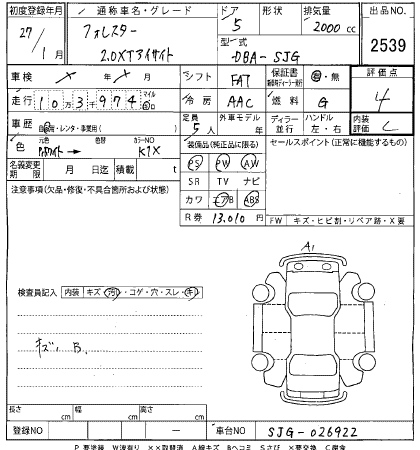 初度登録年月 通称車名・グレード ドア 形状 排気量 出品NO.
27/1月 フォレスター 5 2000cc 2539
2.0XTアイサイト 型式 DBA-SJG
車検 × 年 × 月 シフト FAT 保証書 有・無 評価点
走行 10万3千974 マイル 冷房 AAC 燃料 G 4
車歴 自家用・レンタ・事業用( ) 定員 5人 外車モデル 年 ディーラー 並行 ハンドル 左・右 内装評価 C
色 元色 → 色替 カラーNO K1X 装備品(純正品に限る) セールスポイント(正常に機能するもの)
PS PW AW
名義変更期限 月 日迄 積載 t SR TV ナビ
注意事項(欠品・修復・不具合箇所および状態) カワ エアB ABS
R券 13,010円 FW キズ・ヒビ割・リペア跡・X要
A1
検査員記入 内装 キズ・汚レ・コゲ・穴・スレ・キレ
キズ、B.
長さ cm 幅 cm 高さ cm
登録NO ー 車台NO SJG-026922
P要塗装 W波有り XX取替済 A線キズ Bヘコミ Sさび X要交換 C腐食